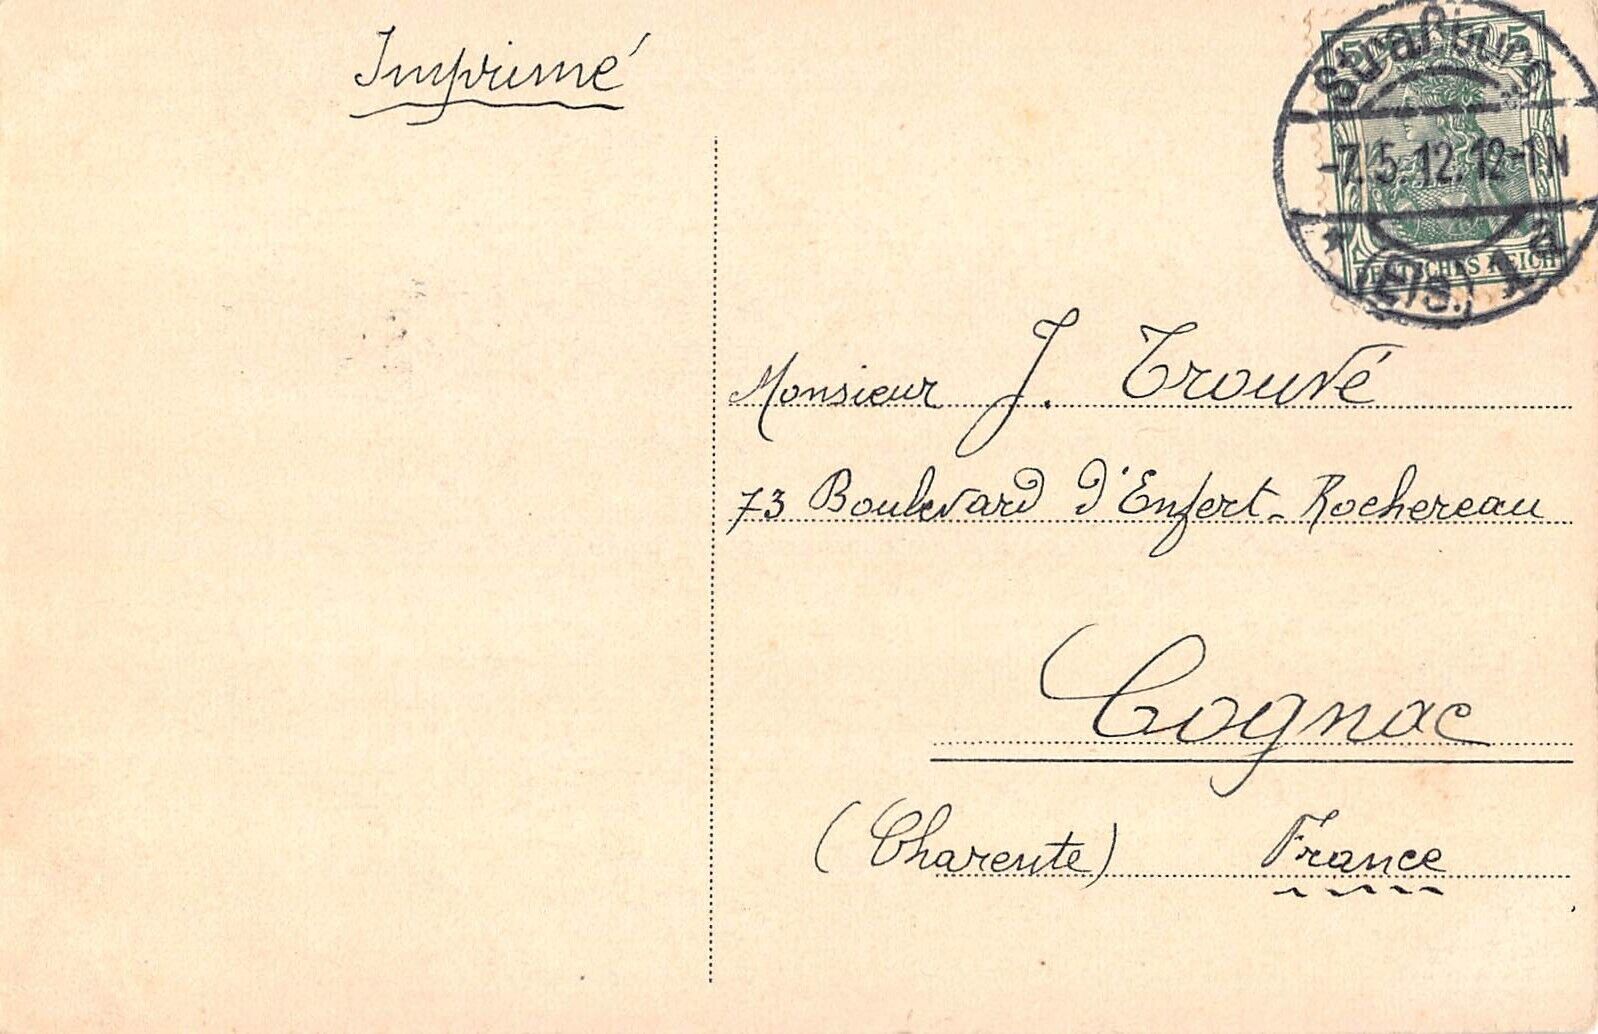 Imprimé
5 5
Straßburg
-7.5.12.12-1N
* (Els.) 1 a
DEUTSCHES REICH
Monsieur J. Trouvé
73 Boulevard d'Enfert-Rochereau
Cognac
(Charente) France